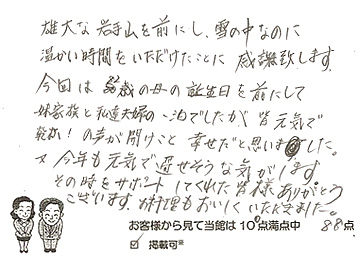 雄大な岩手山を前にし、雪の中なのに
温かい時間をいただけたことに 感謝致します。
今回は 歳の母の誕生日を前にして
妹家族と私達夫婦の一泊でしたが、皆元気で
乾杯!の声が聞けこと 幸せだと思いました。
又 今年も元気で過せそうな気がします。
その時をサポートしてくれた皆様ありがとう
ございます。お料理もおいしくいただきました。
お客様から見て当館は10点満点中 88点
☑ 掲載可